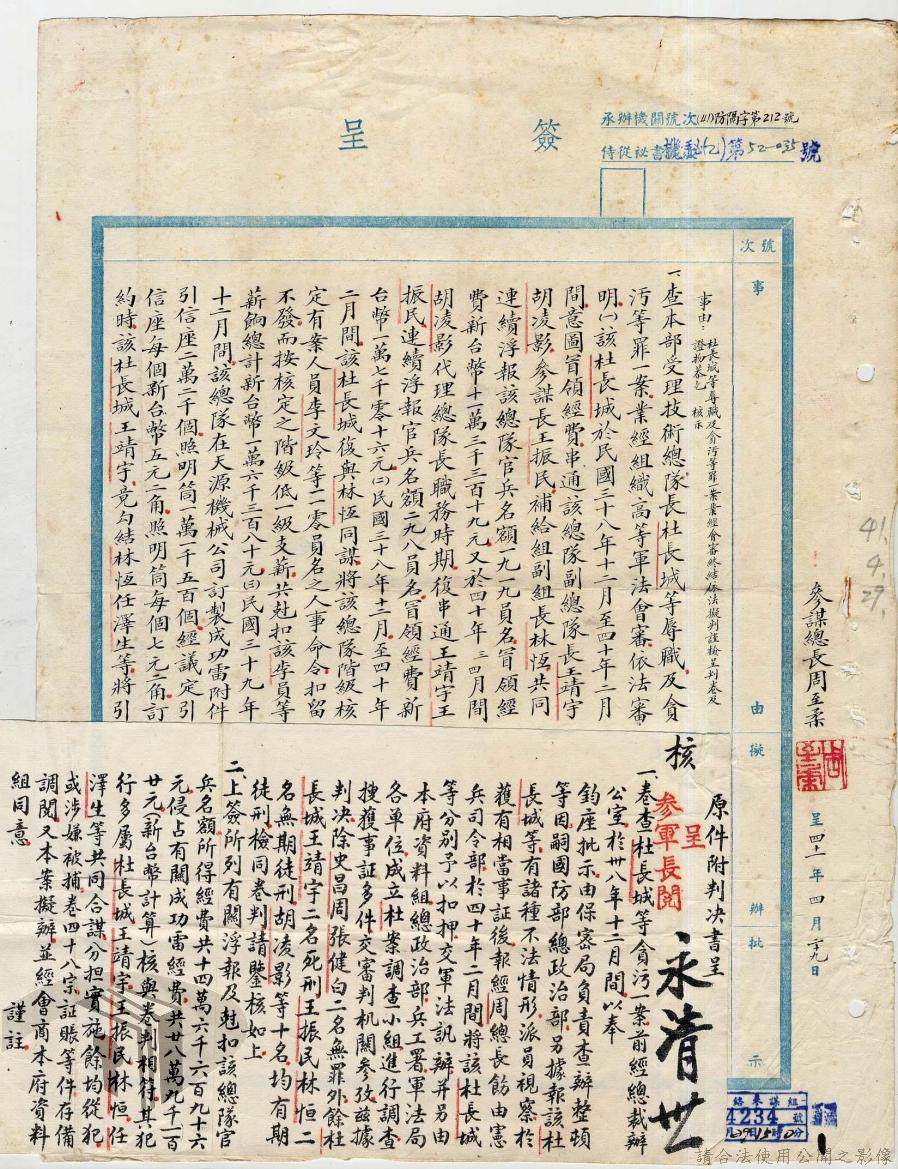 簽呈
承辦機關號次(41)防隔字第212號
侍從秘書機秘(乙)第52-035號
號次
事由擬辦批示
參謀總長周至柔
呈四十一年四月廿九日
41.4.29
事由:杜長城等辱職及貪污等罪一案業經會審終結依法擬判謹檢呈判卷及
證物恭乞 核示
一、查本部受理技術總隊長杜長城等辱職及貪
污等罪一案業經組織高等軍法會審依法審
明(一)該杜長城於民國三十八年十二月至四十年二月
間意圖冒領經費串通該總隊副總隊長王靖宇
胡凌影參謀長王振民補給組副組長林恆共同
連續浮報該總隊官兵名額一九一九員名冒領經
費新台幣十一萬三千三百十九元又於四十年三四月間
胡凌影代理總隊長職務時期復串通王靖宇王
振民連續浮報官兵名額二九八員名冒領經費新
台幣一萬七千零十六元(二)民國三十八年十二月至四十年
二月間該杜長城復與林恆同謀將該總隊階級核
定有案人員李文玲等一二零員名之人事命令扣留
不發而按核定之階級低一級支薪共尅扣該李員等
薪餉總計新台幣一萬六千三百八十元(三)民國三十九年
十二月間該總隊在天源機械公司訂製成功雷附件
引信座二萬二千個照明筒一萬二千五百個經議定引
信座每個新台幣五元二角照明筒每個七元二角訂
約時該杜長城王靖宇竟勾結林恆任澤生等將引
原件附判決書呈
核
呈
參軍長閱
永清 廿
一、卷查杜長城等貪污一案前經總裁辦
公室於卅八年十二月間以奉
鈞座批示由保密局負責查辦整頓
等因嗣國防部總政治部另據報該杜
長城等有諸種不法情形派員視察於
獲有相當事証後報經周總長飭由憲
兵司令部於四十年二月間將該杜長城
等分別予以扣押交軍法訊辦并另由
本府資料組總政治部兵工署軍法局
各單位成立杜案調查小組進行調查
搜獲事証多件交審判机關參攷茲據
判決除史昌周張健白二名無罪外餘杜
長城王靖宇二名死刑王振民林恒二
名無期徒刑胡凌影等十名均有期
徒刑檢同卷判請鑒核如上
二、上簽所列有關浮報及尅扣該總隊官
兵名額所得經費共十四萬六千六百九十六
元侵占有關成功雷經費共廿八萬九千一百
廿元(新台幣計算)核與卷判相符其犯
行多屬杜長城王靖宇王振民林恒任
澤生等共同合謀分担實施餘均從犯
或涉嫌被捕卷四十八宗証賬等件存備
調閱又本案擬辦並經會商本府資料
組同意 謹註
4234號
1
請合法使用公開之影像